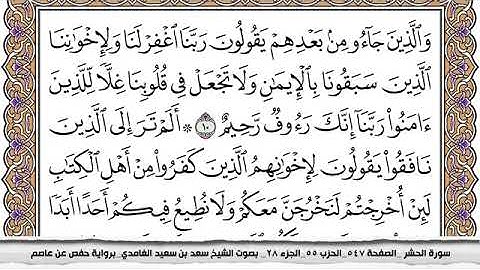 وَالَّذِينَ جَآءُو مِنۢ بَعْدِهِمْ يَقُولُونَ رَبَّنَا اغْفِرْ لَنَا وَلِإِخْوَانِنَا
الَّذِينَ سَبَقُونَا بِالْإِيمَانِ وَلَا تَجْعَلْ فِي قُلُوبِنَا غِلًّا لِّلَّذِينَ
ءَامَنُوا رَبَّنَآ إِنَّكَ رَءُوفٌ رَّحِيمٌ ١٠ ۞ أَلَمْ تَرَ إِلَى الَّذِينَ
نَافَقُوا يَقُولُونَ لِإِخْوَانِهِمُ الَّذِينَ كَفَرُوا مِنْ أَهْلِ الْكِتَابِ
لَئِنْ أُخْرِجْتُمْ لَنَخْرُجَنَّ مَعَكُمْ وَلَا نُطِيعُ فِيكُمْ أَحَدًا أَبَدًا
سورة الحشر _الصفحة ٥٤٧_ الحزب ٥٥ _الجزء ٢٨_ بصوت الشيخ سعد بن سعيد الغامدي_ برواية حفص عن عاصم